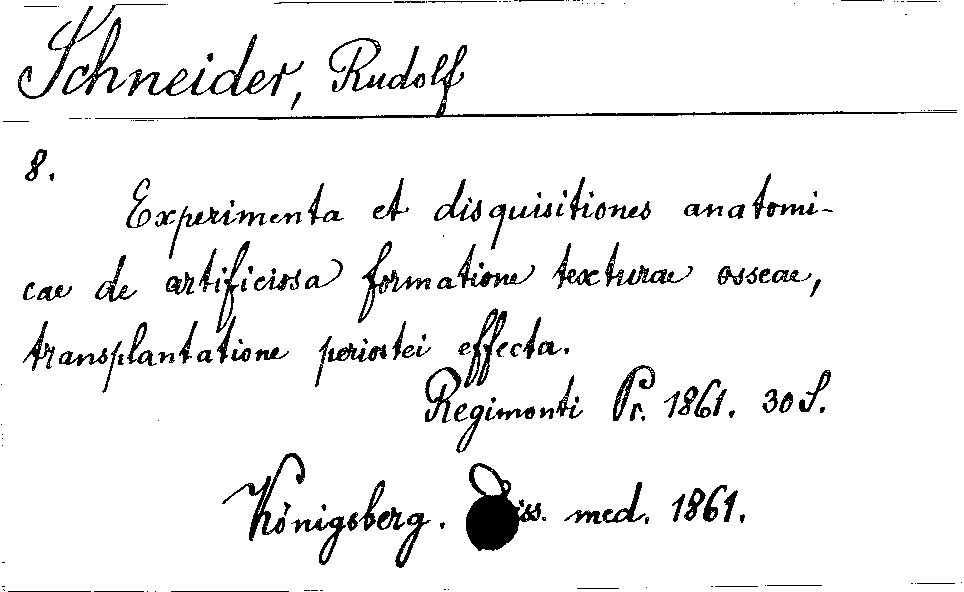 Schneider, Rudolf
8.
Experimenta et disquisitiones anatomi-
cae de artificiosa formatione texturae osseae,
transplantatione periostei effecta.
Regimonti Pr. 1861. 30 S.
Königsberg. Diss. med. 1861.